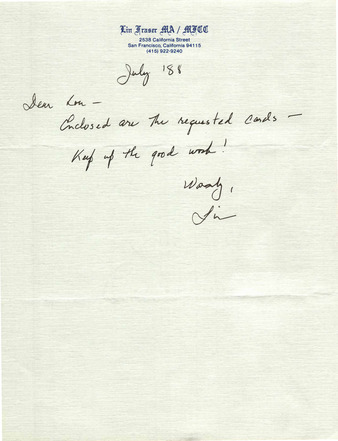 Lin Fraser MA / MFCC
2538 California Street
San Francisco, California 94115
(415) 922-9240
July '88
Dear Lou —
Enclosed are the requested cards —
Keep up the good work!
Warmly,
Lin